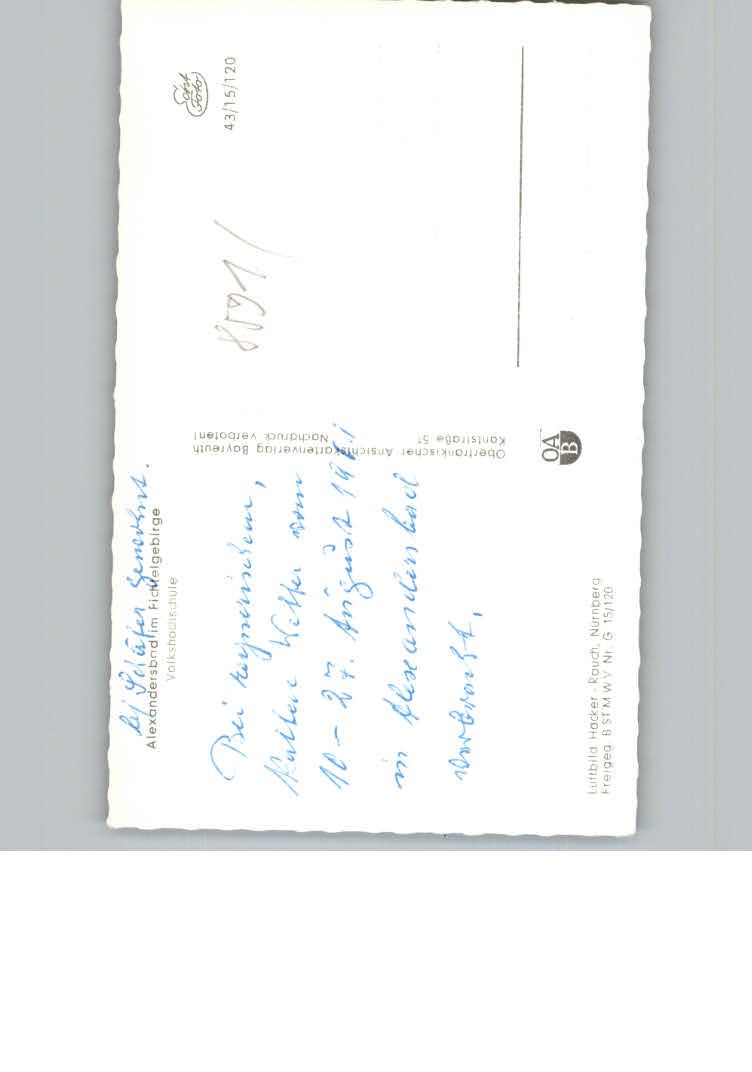 bei Schäfer gewohnt.
Alexandersbad im Fichtelgebirge
Volkshochschule
Bei regnerischem,
kaltem Wetter vom
10 – 27. August 1961
in Alexandersbad
verbracht.
Luftbild Hacker - Rauch, Nürnberg
Freigeg B ST M W V Nr. G 15/120
Oberfränkischer Ansichtskartenverlag Bayreuth
Kantstraße 51 Nachdruck verboten!
OA
B
Echt
Foto
43/15/120
8591